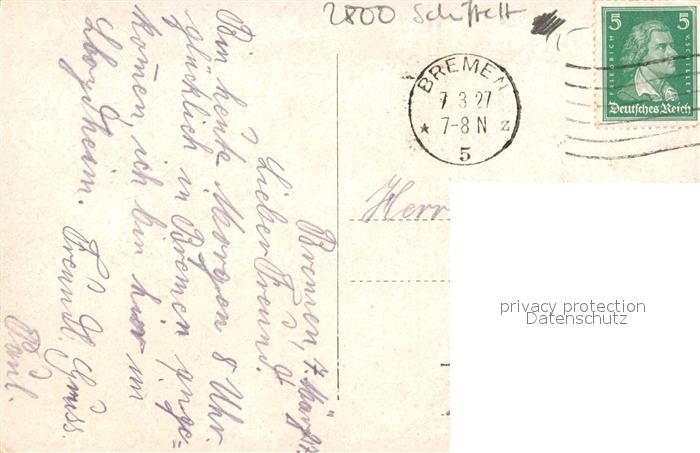 2800 Schifftelt
BREMEN
7.3.27
★ 7-8 N z
5
5 5
FRIEDRICH v. SCHILLER
Deutsches Reich
Bremen, 7. März 27.
Lieber Freund!
Bin heute Morgen 8 Uhr
glücklich in Bremen ange=
kommen, ich bin hier im
Lloydheim.
Freundl. Gruss.
Paul.
Herr
privacy protection
Datenschutz